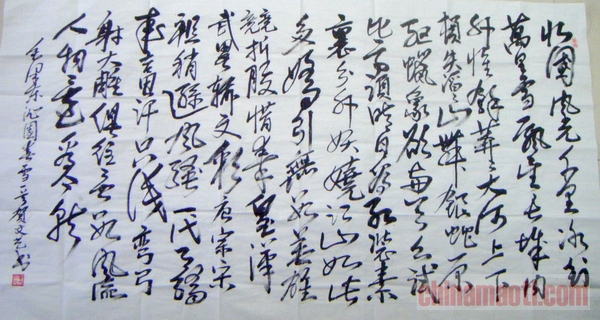 北国风光千里冰封
萬里雪飘望长城内
外惟馀莽莽大河上下
顿失滔滔山舞银蛇原
驰蜡象欲与天公试
比高须晴日看红装素
裹分外妖娆江山如此
多娇引無数英雄
竞折腰惜秦皇漢
武略输文彩唐宗宋
祖稍逊风骚一代天骄
成吉思汗只识弯弓
射大雕俱往矣数风流
人物还看今朝
毛泽东沁园春雪 贺文书
chinamaoti.com